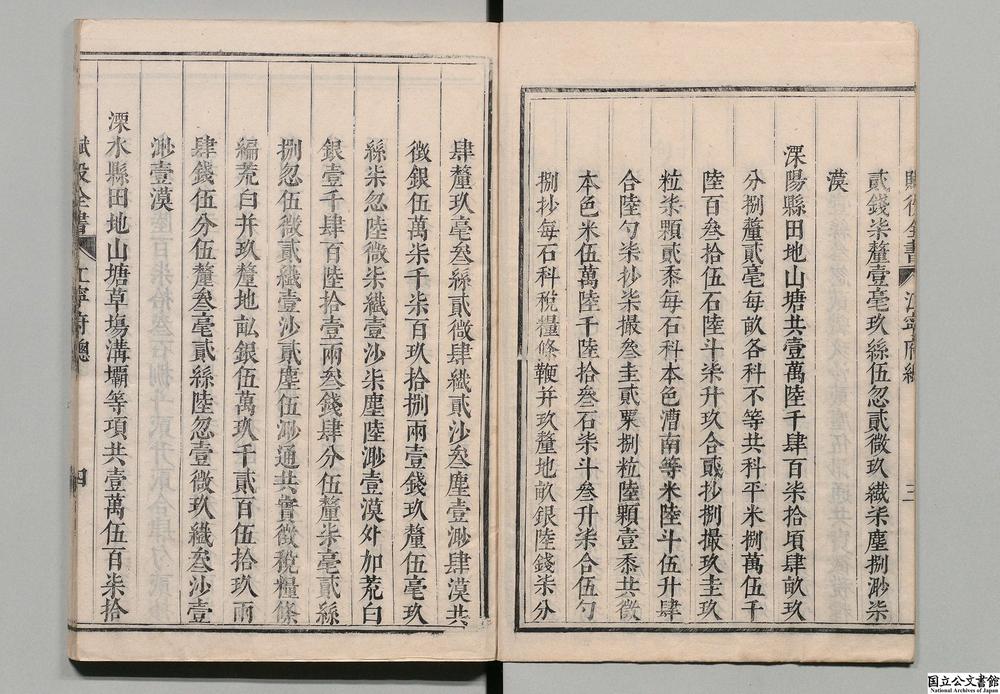 賦役全書 江寧府總 三
貳錢柒釐壹毫玖絲伍忽貳微玖纖柒塵捌渺柒
漠
溧陽縣田地山塘共壹萬陸千肆百柒拾頃肆畝玖
分捌釐貳毫每畝各科不等共科平米捌萬伍千
陸百叁拾伍石陸斗柒升玖合貳抄捌撮玖圭玖
粒柒顆貳黍每石科本色漕南等米陸斗伍升肆
合陸勺柒抄柒撮叁圭貳粟捌粒陸顆壹黍共徵
本色米伍萬陸千陸拾叁石柒斗叁升柒合伍勺
捌抄每石科稅糧條鞭并玖釐地畝銀陸錢柒分
肆釐玖毫叁絲貳微肆纖貳沙叁塵壹渺肆漠共
徵銀伍萬柒千柒百玖拾捌兩壹錢玖釐伍毫玖
絲柒忽陸微柒纖壹沙柒塵陸渺壹漠外加荒白
銀壹千肆百陸拾壹兩叁錢肆分伍釐柒毫貳絲
捌忽伍微貳纖壹沙貳塵伍渺通共實徵稅糧條
編荒白并玖釐地畝銀伍萬玖千貳百伍拾玖兩
肆錢伍分伍釐叁毫貳絲陸忽壹微玖纖叁沙壹
渺壹漠
溧水縣田地山塘草塲溝壩等項共壹萬伍百柒拾
賦役全書 江寧府總 四
国立公文書館
National Archives of Japan